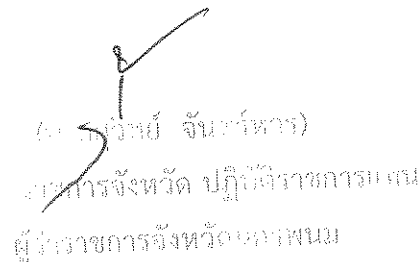 จันทร์หาร)
ราชการจังหวัด ปฏิบัติราชการแทน
ผู้ว่าราชการจังหวัดนครพนม